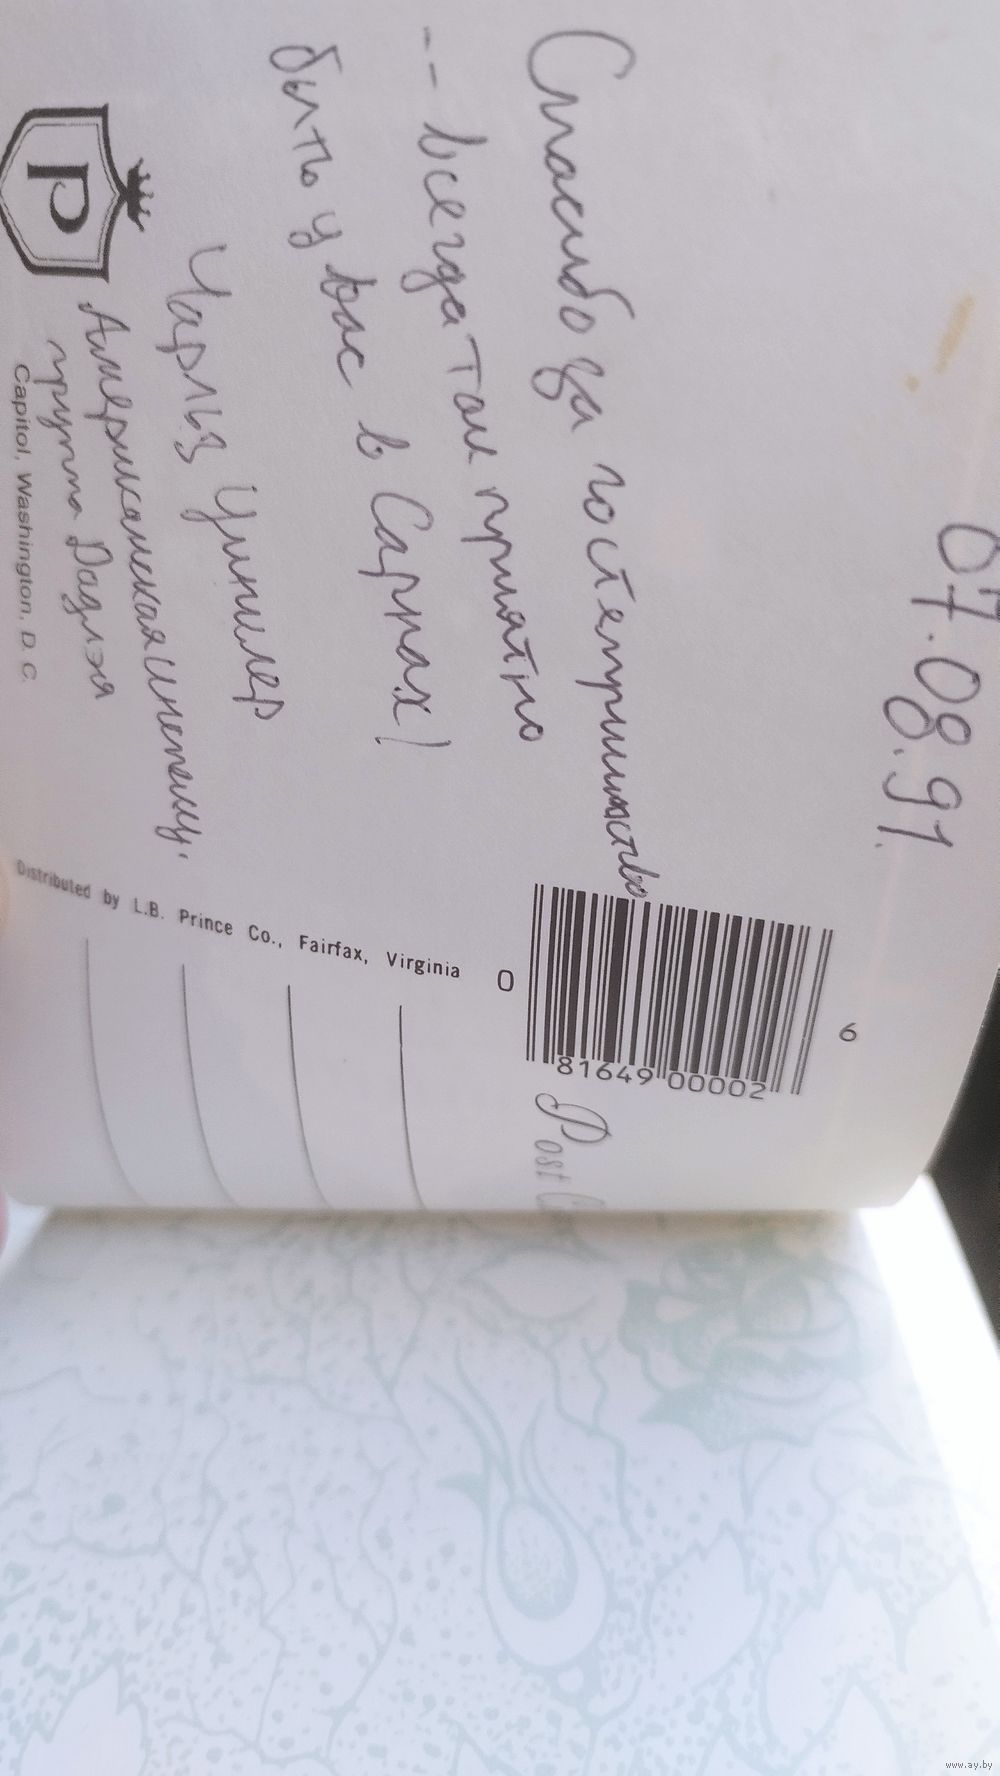 07.08.91.
Спасибо за гостеприимство
-- всегда так приятно
быть у вас в Сарнах!
Чарльз
Американская инспекц.
группа Дадлэя
P
Capitol, Washington, D. C.
Distributed by L.B. Prince Co., Fairfax, Virginia
0 81649 00002 6
Post
www.ay.by